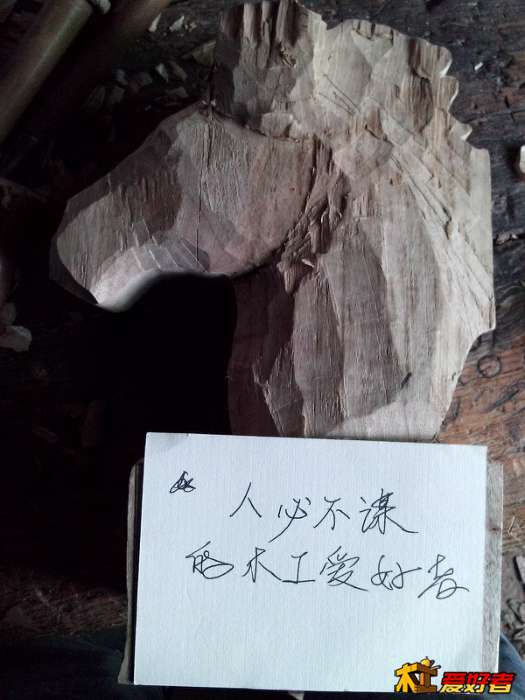 人必不谋
的木工爱好者
木工爱好者